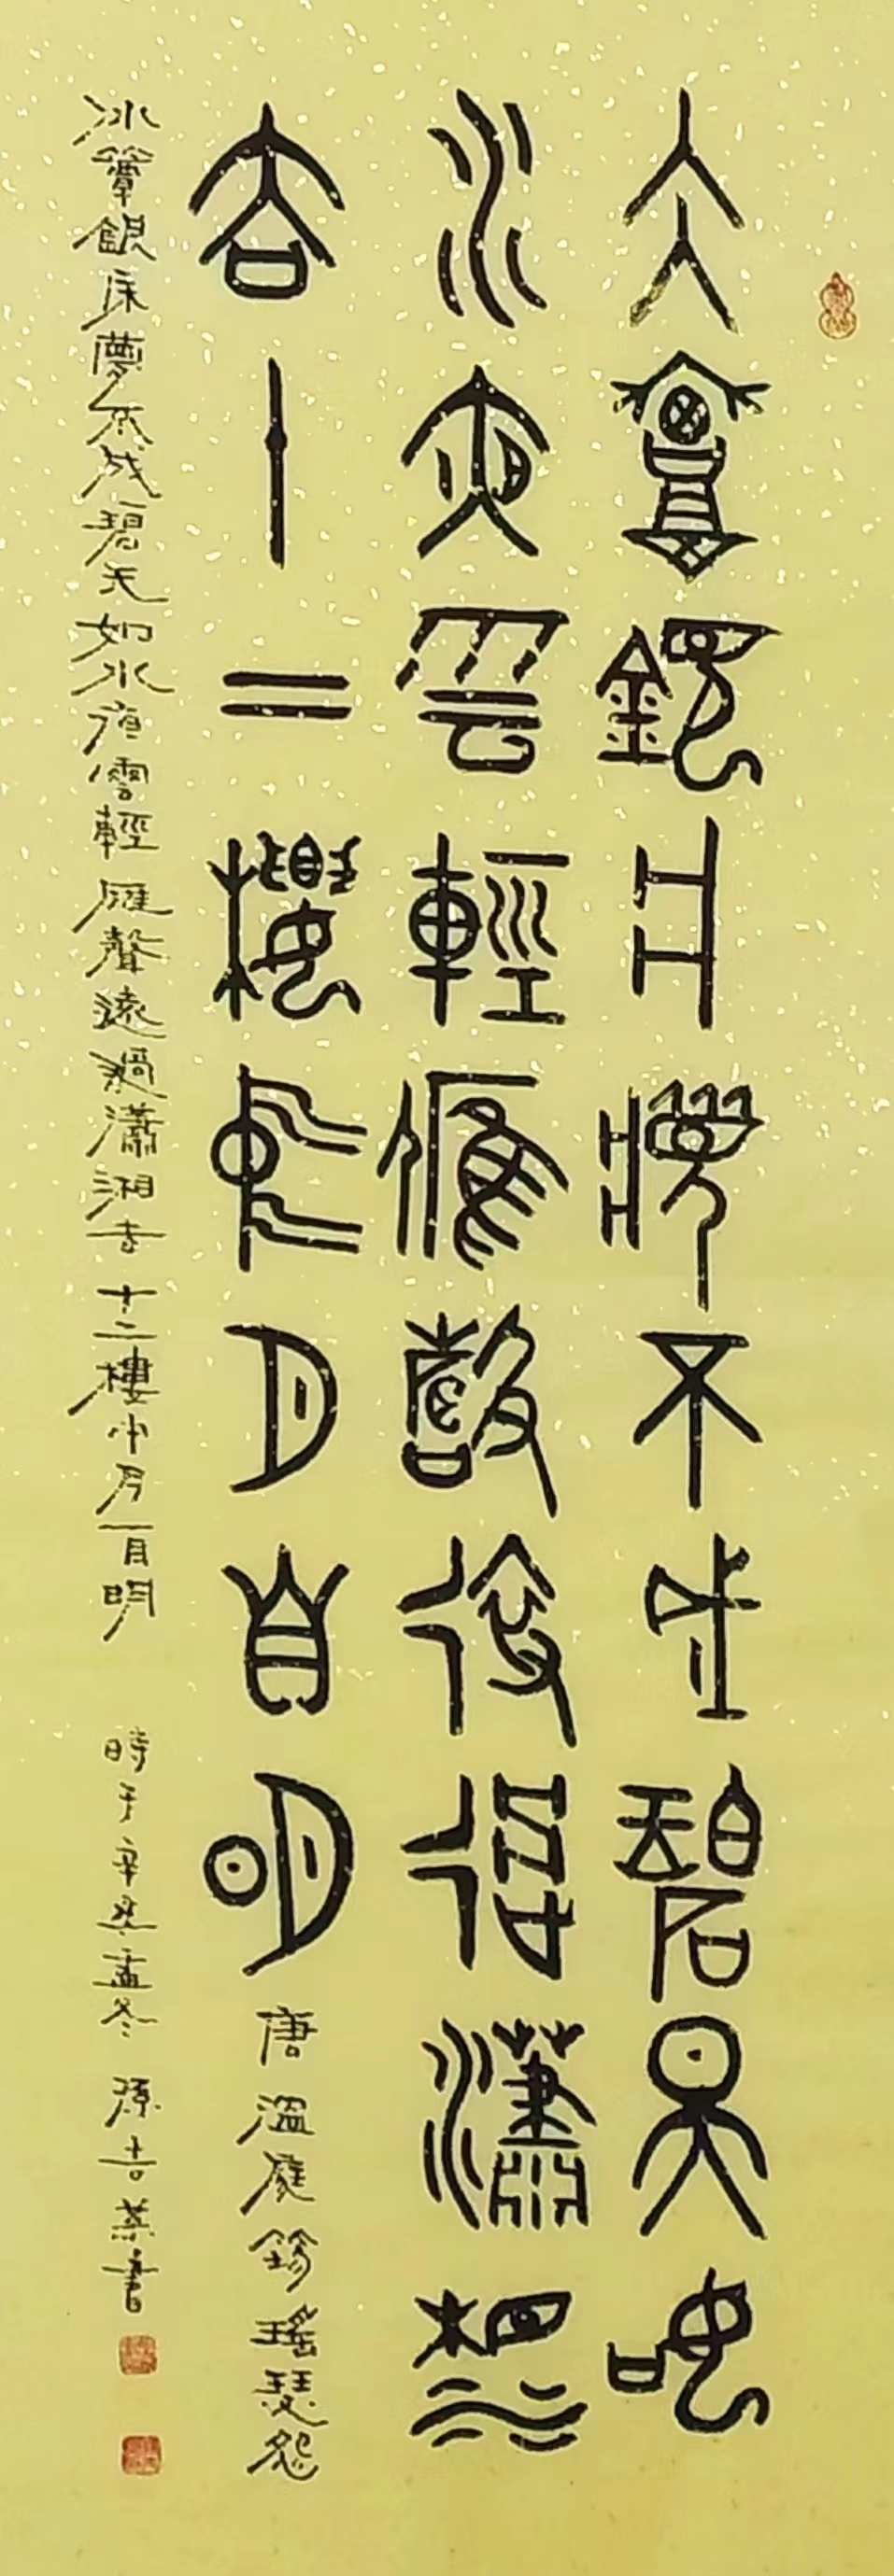 冰簟銀床夢不成碧天如
水夜雲輕雁聲遠過瀟湘
去十二樓中月自明 唐溫庭筠瑤瑟怨
冰簟銀床夢不成碧天如水夜雲輕雁聲遠過瀟湘去十二樓中月自明 時于辛丑孟冬 孫吉書